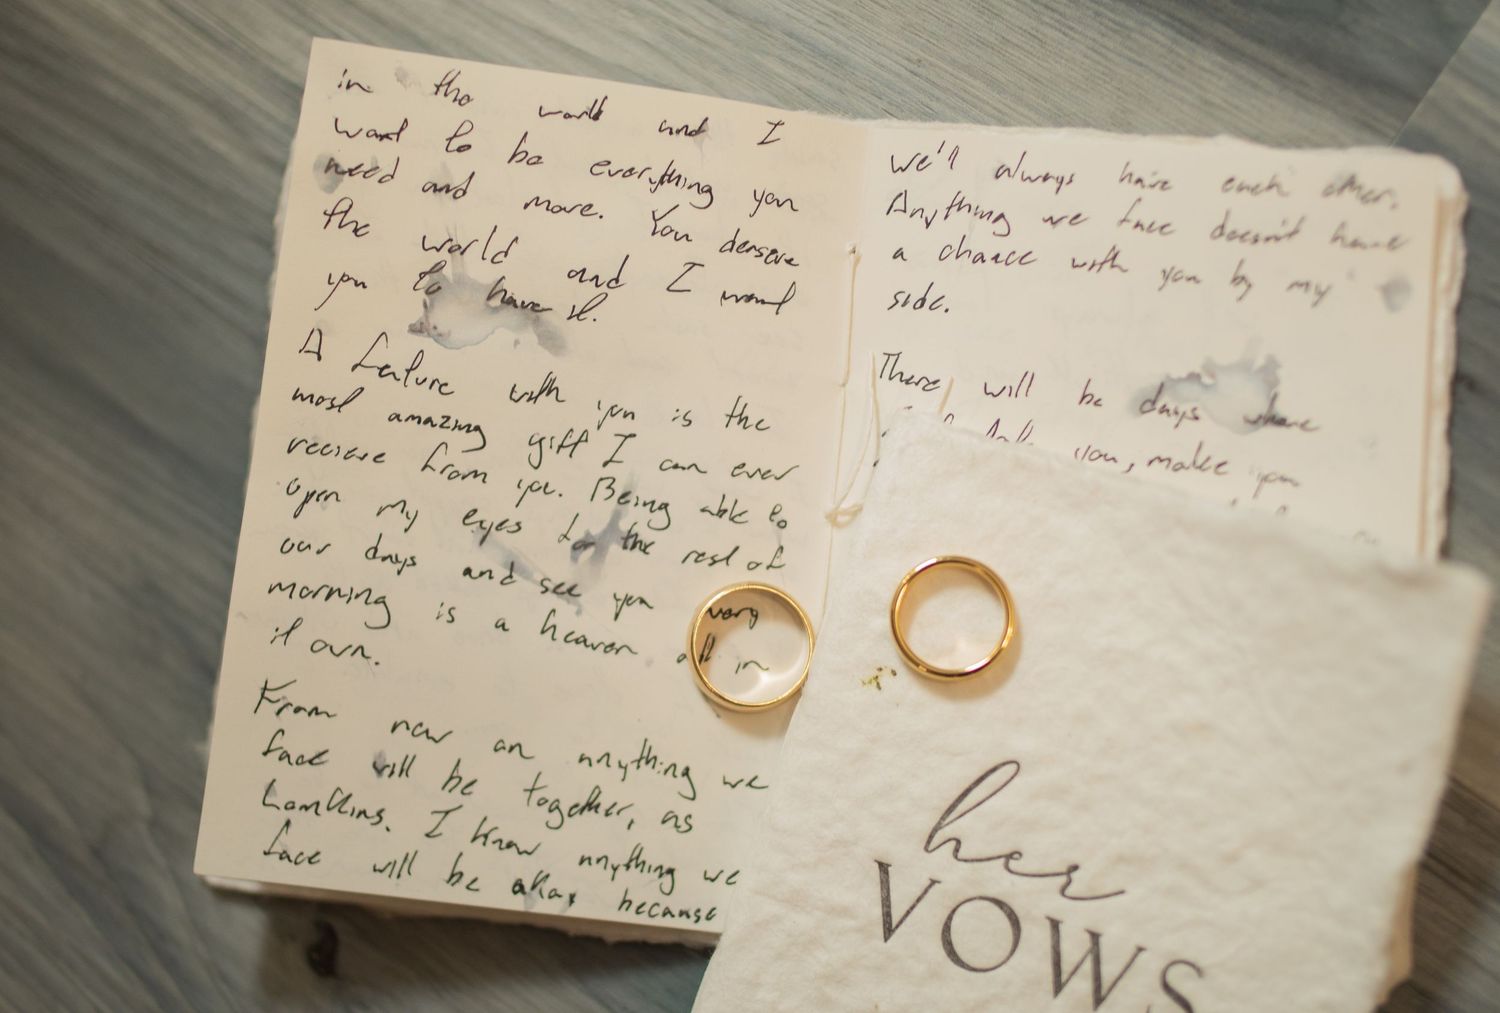 in the world and I
want to be everything you
need and more. You deserve
the world and I want
you to have it.
A future with you is the
most amazing gift I can ever
recieve from you. Being able to
open my eyes for the rest of
our days and see you every
morning is a heaven all in
it own.
From now on anything we
face will be together, as
Lamkins. I know anything we
face will be okay because
we'll always have each other.
Anything we face doesn't have
a chance with you by my
side.
There will be days where
you, make you
her
VOWS